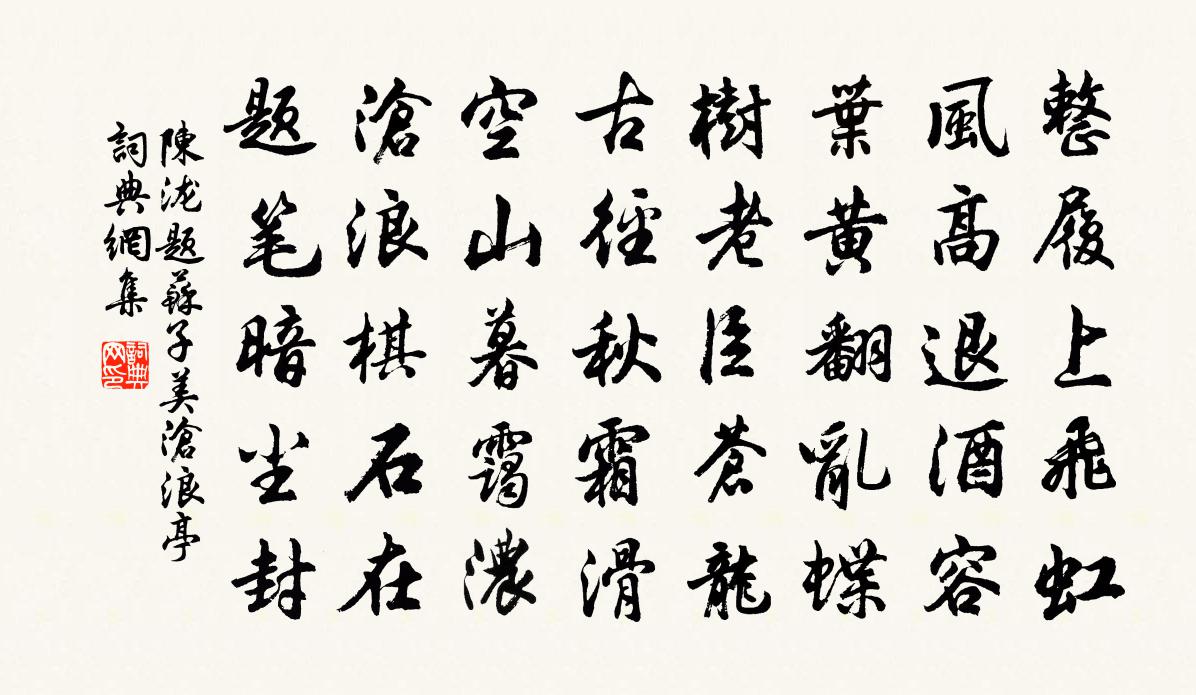 整履上飛虹
風高退酒容
葉黄翻亂蝶
樹老臣蒼龍
古徑秋霜滑
空山暮靄濃
滄浪棋石在
题笔暗尘封
陳泷题蘇子美滄浪亭
詞典網集
詞典
网印